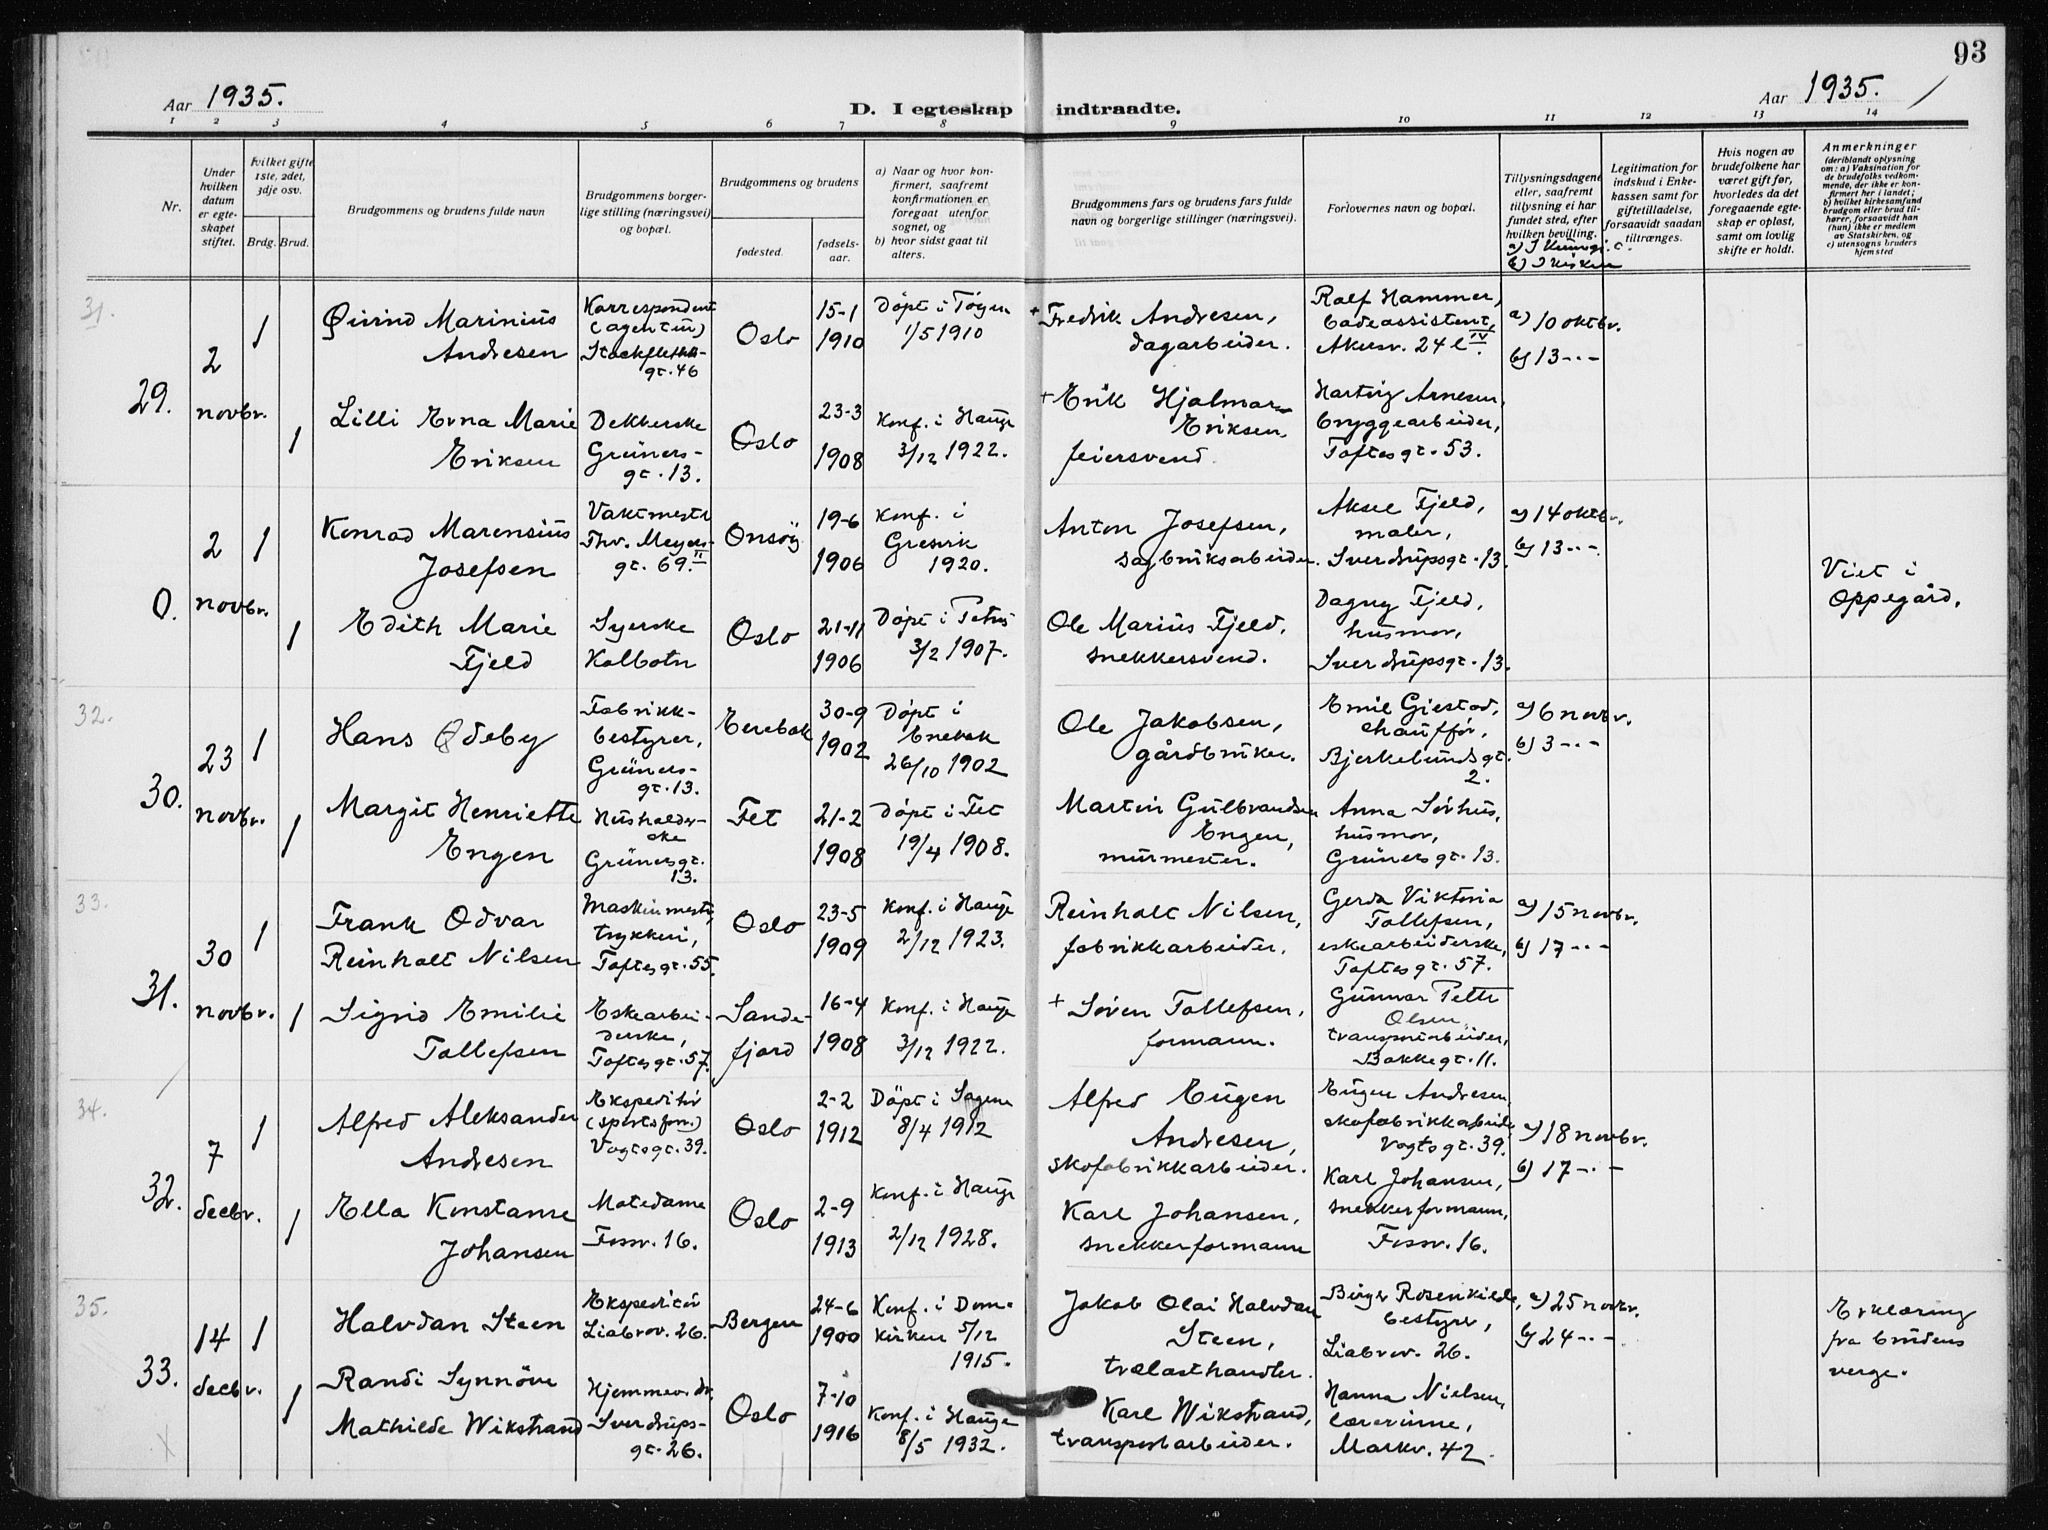 93
Aar 1935.
D. I egteskap indtraadte.
Aar 1935.
1 2 3 4 5 6 7 8 9 10 11 12 13 14
Nr.
Under hvilken datum er egteskapet stiftet.
Hvilket gifte 1ste, 2det, 3dje osv.
Brdg. Brud.
Brudgommens og brudens fulde navn
Brudgommens borgerlige stilling (næringsvei) og bopæl.
Brudgommens og brudens
fødested. fødselsaar.
a) Naar og hvor konfirmert, saafremt konfirmationen er foregaat utenfor sognet, og
b) hvor sidst gaat til alters.
Brudgommens fars og brudens fars fulde navn og borgerlige stillinger (næringsvei).
Forlovernes navn og bopæl.
Tillysningsdagene eller, saafremt tillysning ei har fundet sted, efter hvilken bevilling.
b) I kirken
Legitimation for indskud i Enkekassen samt for giftetilladelse, forsaavidt saadan tiltrænges.
Hvis nogen av brudefolkene har været gift før, hvorledes da det foregaaende egteskap er opløst, samt om lovlig skifte er holdt.
Anmerkninger
(deriblandt oplysning om: a) Vaksination for de brudefolks vedkommende, der ikke er konfirmert her i landet; b) hvilket kirkesamfund brudgom eller brud tilhører, forsaavidt han (hun) ikke er medlem av Statskirken, og c) utensogns bruders hjemsted
31.
29.
2 novbr.
1
Øivind Marinius
Andresen
Korrespondent
(agentur)
Stockflethsgt. 46
Oslo
15-1
1910
Döpt i Töyen
1/5 1910
+ Fredrik Andresen,
dagarbeider.
Rolf Hammer,
badeassistent,
Akersv. 24 c IV.
a) 10 oktbr.
b) 13 - " -
1
Lilli Erna Marie
Eriksen
Dekkerske
Grüners-
gt. 13.
Oslo
23-3
1908
Konf. i Hauge
3/12 1922.
+ Erik Hjalmar
Eriksen,
feiersvend.
Hartvig Arnesen,
bryggearbeider,
Toftesgt. 53.
0.
2 novbr.
1
Konrad Marensius
Josefsen
Vaktmester
Thv. Meyers-
gt. 69. II
Onsöy
19-6
1906
Konf. i
Gresvik
1920.
Anton Josefsen,
sagbruksarbeider.
Aksel Fjeld,
maler,
Sverdrupsgt. 13.
a) 14 oktbr.
b) 13 - " -
Viet i
Oppegård.
1
Edith Marie
Fjeld
Syerske
Kolbotn
Oslo
21-11
1906
Döpt i Petrus
3/2 1907.
Ole Marius Fjeld,
snekkersvend.
Dagny Fjeld,
husmor,
Sverdrupsgt. 13.
32.
30.
23 novbr.
1
Hans Ødeby
Fabrikk-
bestyrer,
Grüners-
gt. 13.
Enebak
30-9
1902
Döpt i
Enebak
26/10 1902
Ole Jakobsen,
gårdbruker.
Emil Gjestad,
chauffør,
Bjerkelundsgt.
2.
a) 6 novbr.
b) 3 - " -
1
Margit Henriette
Engen
Husholder-
ske
Grünersgt.
13.
Fet
21-2
1908
Döpt i Fet
19/4 1908.
Martin Gulbrandsen
Engen,
murmester.
Anna Sörhus,
husmor,
Grünersgt. 13.
33.
31.
30 novbr.
1
Frank Odvar
Reinholt Nilsen
Maskinmester,
trykkeri,
Toftesgt. 55.
Oslo
23-5
1909
Konf. i Hauge
2/12 1923.
Reinholt Nilsen,
fabrikkarbeider.
Gerda Viktoria
Tollefsen,
eskearbeiderske,
Toftesgt. 57.
a) 15 novbr.
b) 17 - " -
1
Sigrid Emilie
Tollefsen
Eskearbei-
derske,
Toftesgt. 57.
Sande-
fjord
16-4
1908
Konf. i Hauge
3/12 1922.
+ Sören Tollefsen,
formann.
Gunnar Petter
Olsen,
transportarbeider,
Bakkegt. 11.
34.
32.
7 decbr.
1
Alfred Aleksander
Andresen
Ekspeditör
(sportsforr.)
Vogtsgt. 39.
Oslo
2-2
1912
Döpt i Sagene
8/4 1912
Alfred Eugen
Andresen,
skofabrikkarbeider.
Eugen Andresen,
skofabrikkarbeider
Vogtsgt. 39.
a) 18 novbr.
b) 17 - " -
1
Ella Konstanse
Johansen
Motedame
Fossv. 16.
Oslo
2-9
1913
Konf. i Hauge
2/12 1928.
Karl Johansen,
snekkerformann
Karl Johansen,
snekkerformann,
Fossv. 16.
35.
33.
14 decbr.
1
Halvdan Steen
Ekspeditör
Liabrov. 26.
Bergen
24-6
1900
Konf. i Dom-
kirken 5/12
1915.
Jakob Olai Halvdan
Steen,
trælasthandler.
Birger Rosenkilde,
bestyrer,
Liabrov. 26.
a) 25 novbr.
b) 24 - " -
Erklæring
fra brudens
verge.
1
Randi Synnöve
Mathilde Wikstrand
Hjemmev. dr.
Sverdrups-
gt. 26.
Oslo
7-10
1916
Konf. i Hauge
8/5 1932.
Karl Wikstrand,
transportarbeider.
Hanna Nielsen,
lærerinne,
Markv. 42